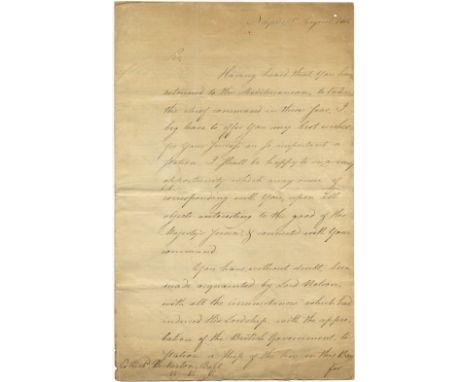 Sir
Having heard that You have
returned to the Mediterranean, to take
the chief command in these Seas, I
beg leave to offer You my best wishes
for Your Success in so important a
station. I shall be happy in every
opportunity which may occur of
corresponding with You, upon all
objects interesting to the good of His
Majesty's Service, & connected with Your
command.
You have without doubt been
made acquainted by Lord Nelson
with all the circumstances which had
induced His Lordship, with the appro-
bation of the British Government to
station a Ship of the line in this Bay
for